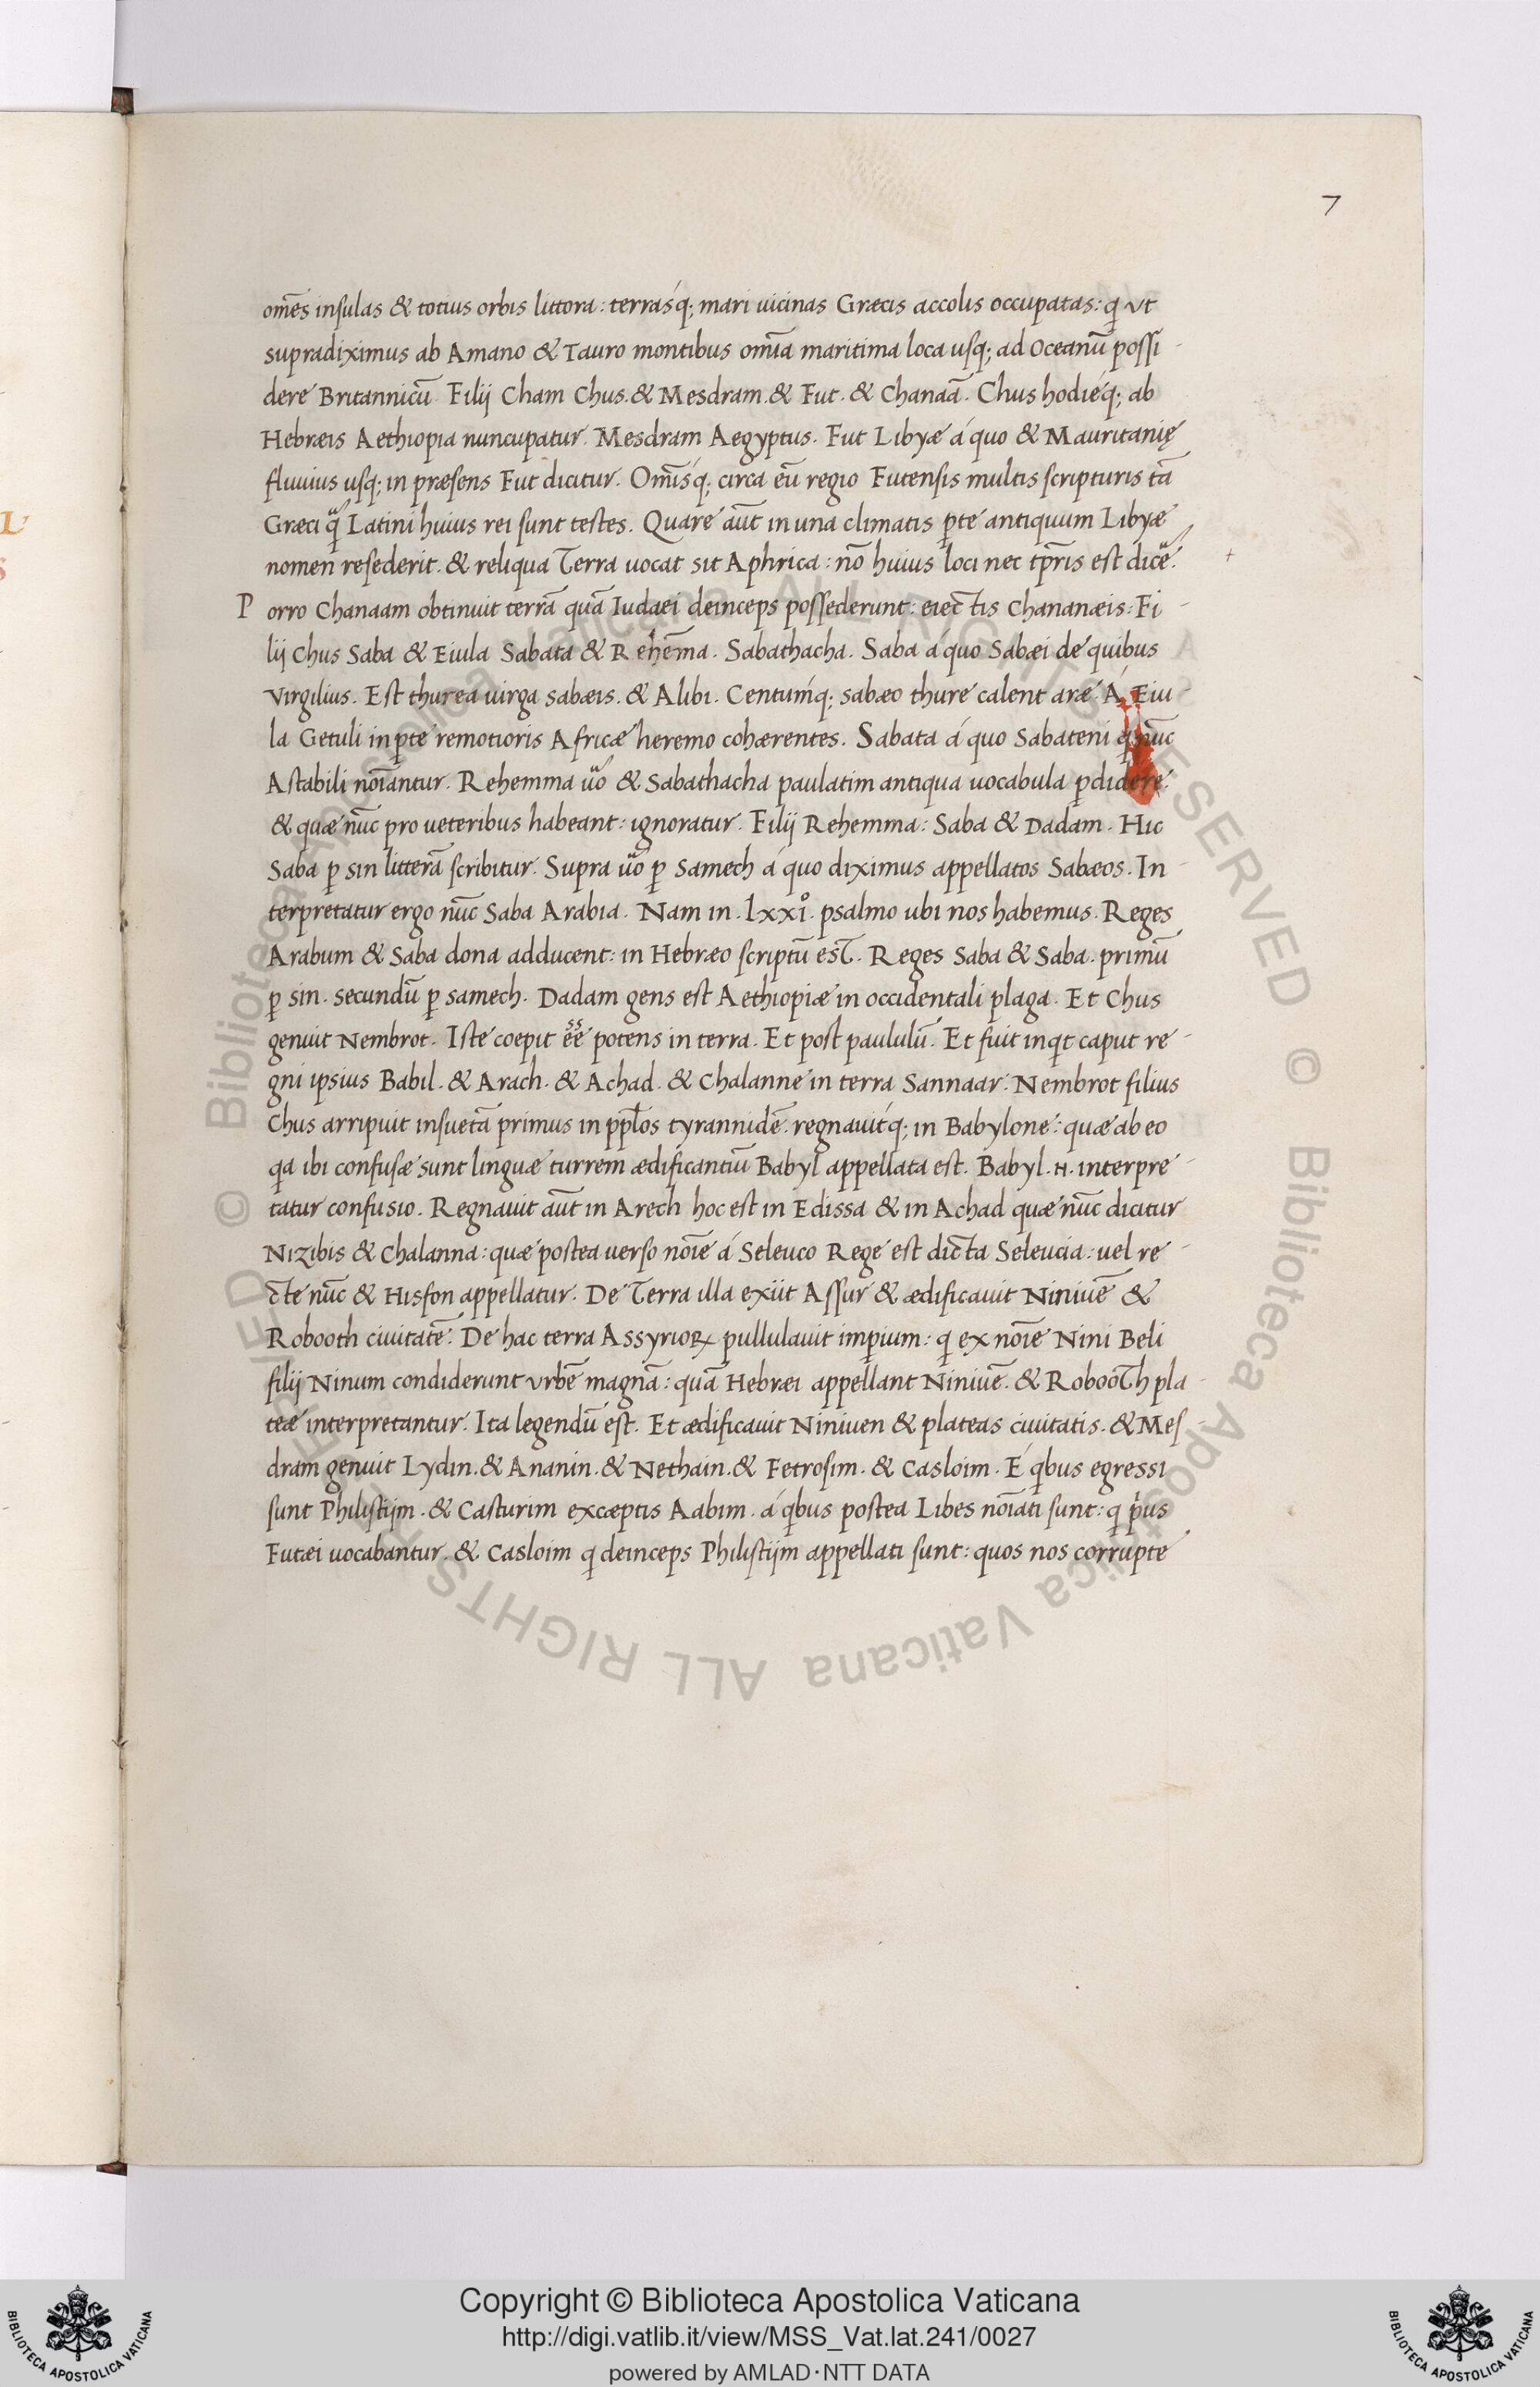 7
om̄es insulas & totius orbis littora: terrasq́; mari uicinas Græcis accolis occupatas: q vt
supradiximus ab Amano & Tauro montibus omīa maritima loca usq; ad Oceanū possi-
dere Britannicū Filij Cham Chus. & Mesdram. & Fut. & Chanaā. Chus hodieq́; ab
Hebræis Aethiopia nuncupatur. Mesdram Aegyptus. Fut Libyæ á quo & Mauritanię
fluuius usq; in præsens Fut dicitur. Omīsq́; circa eū regio Futensis multis scripturis tā
Græci q̃ Latini huius rei sunt testes. Quare aūt in una climatis ꝑte antiquum Libyæ
nomen resederit. & reliqua Terra uocat sit Aphrica: nō huius loci nec tp̄ris est dicē.
Porro Chanaam obtinuit terrā quā Iudaei deinceps possederunt: eiectis Chananæis: Fi-
lij Chus Saba & Eiula Sabata & Rehem̄a. Sabathacha. Saba á quo Sabæi de quibus
Virgilius. Est thurea uirga sabæis. & Alibi. Centumq́; sabæo thure calent aræ. Á Eiu-
la Getuli in ꝑte remotioris Africæ heremo cohærentes. Sabata á quo Sabateni q nūc
Astabili noīantur. Rehemma uõ & Sabathacha paulatim antiqua uocabula ꝑdidere.
& quæ nūc pro ueteribus habeant: ignoratur. Filij Rehemma: Saba & Dadam. Hic
Saba ꝑ sin litterā scribitur. Supra uõ ꝑ Samech á quo diximus appellatos Sabæos. In-
terpretatur ergo nūc Saba Arabia. Nam in. lxxi°. psalmo ubi nos habemus. Reges
Arabum & Saba dona adducent: in Hebræo scriptū est. Reges Saba & Saba. primū
ꝑ sin. secundū ꝑ samech. Dadam gens est Aethiopiæ in occidentali plaga. Et Chus
genuit Nembrot. Iste coepit ēē potens in terra. Et post paululū. Et fuit inqt caput re-
gni ipsius Babil. & Arach. & Achad. & Chalanne in terra Sannaar. Nembrot filius
Chus arripuit insuetā primus in pp̄los tyrannidē. regnauitq́; in Babylone: quæ ab eo
qa ibi confusæ sunt linguæ turrem ædificantiū Babyl appellata est. Babyl. n. interpre-
tatur confusio. Regnauit aūt in Arech hoc est in Edissa & in Achad quæ nūc dicitur
Nizibis & Chalanna: quæ postea uerso noīe á Seleuco Rege est dicta Seleucia: uel re-
cte nūc & Hisfon appellatur. De Terra illa exiit Assur & ædificauit Niniuē &
Robooth ciuitatē. De hac terra Assyrioꝝ pullulauit imꝑium: q ex noīe Nini Beli
filij Ninum condiderunt vrbē magnā: quā Hebræi appellant Niniuē. & Robooth pla-
teæ interpretantur. Ita legendū est. Et ædificauit Niniuen & plateas ciuitatis. & Mes-
dram genuit Lydin. & Ananin. & Nethain. & Fetrosim. & Casloim. É qbus egressi
sunt Philistijm. & Casturim exceptis Aabim. á qbus postea Libes noīati sunt: q pⁱus
Futæi uocabantur. & Casloim q deinceps Philistijm appellati sunt: quos nos corrupte
Copyright © Biblioteca Apostolica Vaticana
http://digi.vatlib.it/view/MSS_Vat.lat.241/0027
powered by AMLAD·NTT DATA